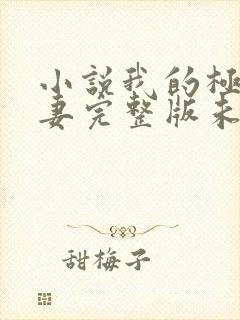 小説我的極
妻完整版未
甜梅子